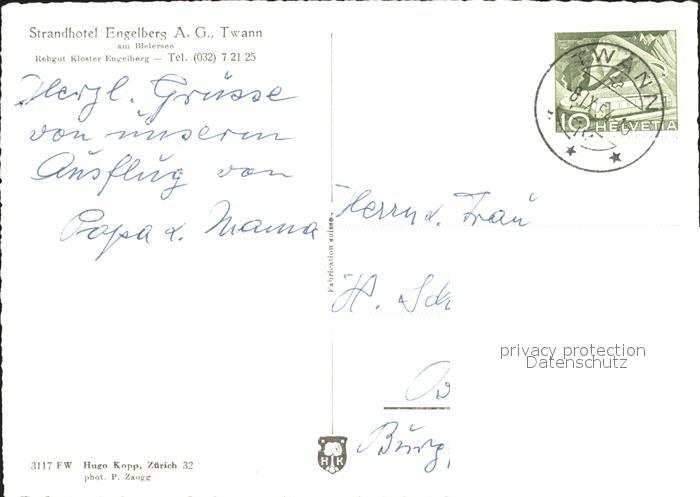 Strandhotel Engelberg A. G., Twann
am Bielersee
Rebgut Kloster Engelberg — Tel. (032) 7 21 25
Herzl. Grüsse
von unserm
Ausflug von
Papa & Mama
Fabrication suisse
TWANN
10 HELVETIA
Herrn & Frau
H. Sch
privacy protection
Datenschutz
Burg
HK
3117 FW Hugo Kopp, Zürich 32
phot. P. Zaugg